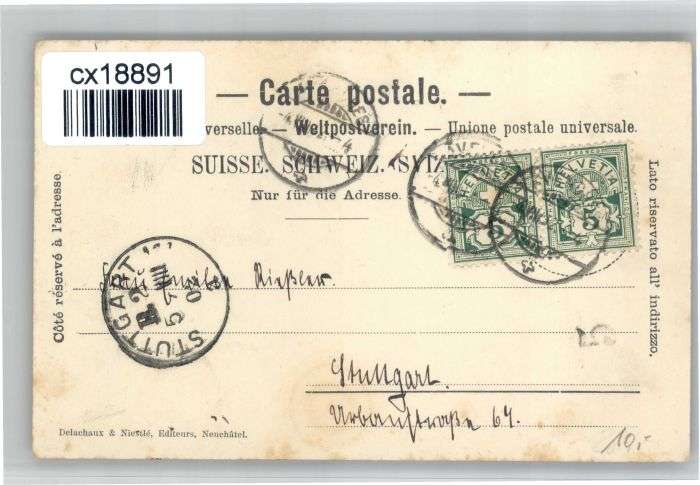 cx18891
— Carte postale. —
verselle. — Weltpostverein. — Unione postale universale.
SUISSE. SCHWEIZ. SVIZ
Nur für die Adresse.
Côté réservé à l'adresse.
Lato riservato all' indirizzo.
HELVETIA
5
5
STUTTGART
Rießler.
Stuttgart.
Urbanstraße 64.
Delachaux & Niestlé, Editeurs, Neuchâtel.
10,-